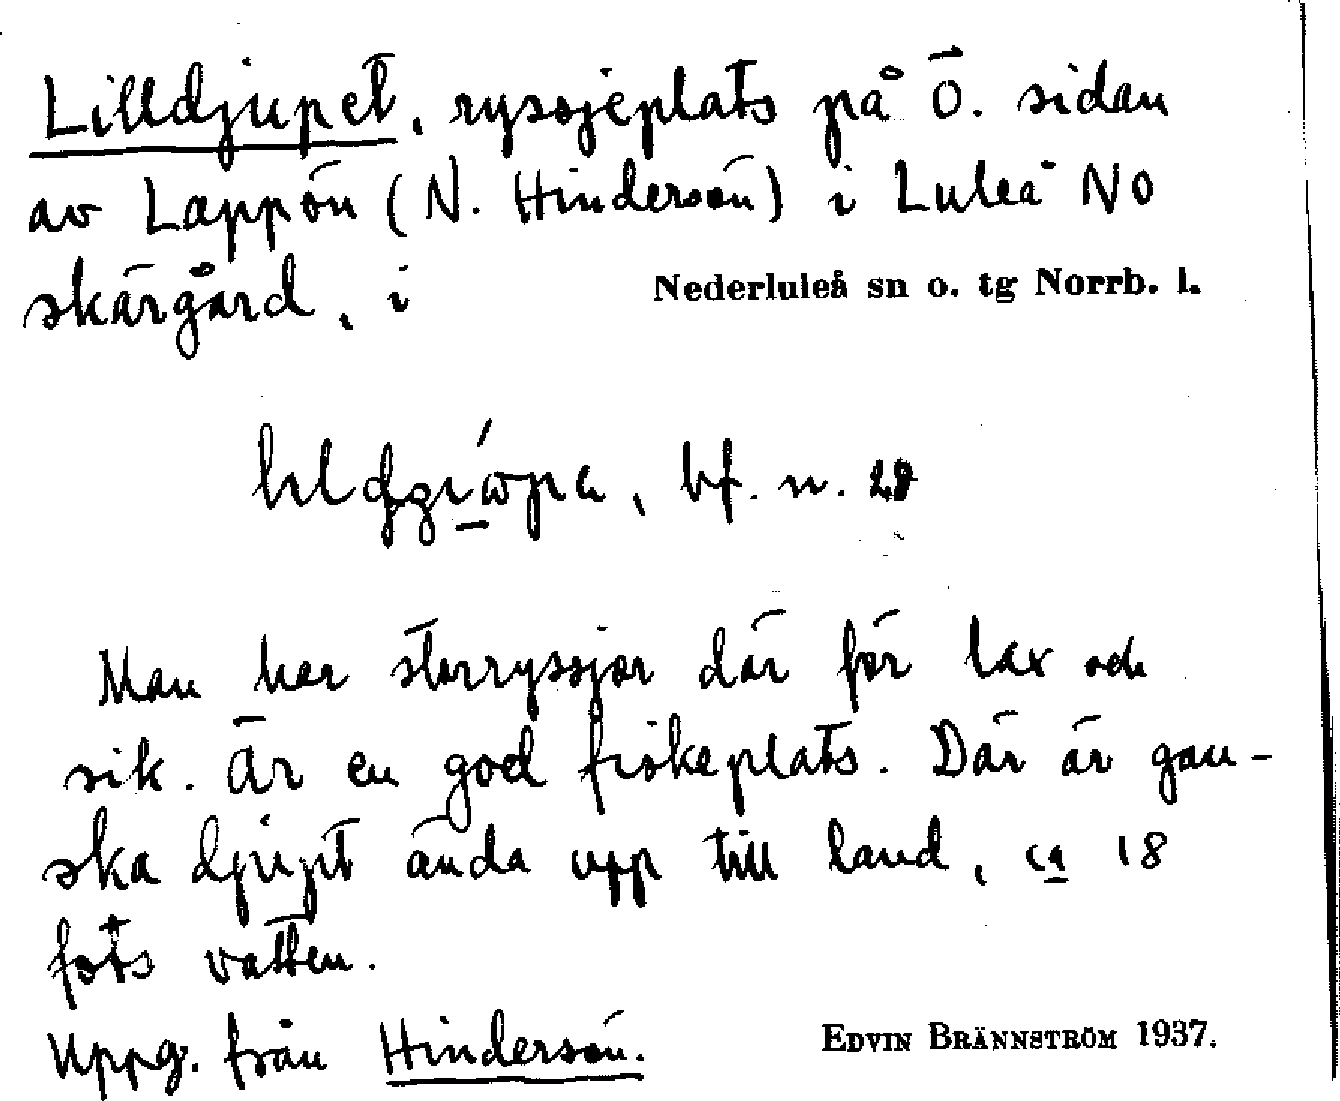 Lilldjupet, ryssjeplats på Ö. sidan
av Lappön (N. Hindersön) i Luleå NO
skärgård, i Nederluleå sn o. tg Norrb. l.
bf. n. 28
Man har storryssjor där för lax och
sik. Är en god fiskeplats. Där är gan-
ska djupt ända upp till land, ca 18
fots vatten.
Uppg. från Hindersön.
EDVIN BRÄNNSTRÖM 1937.